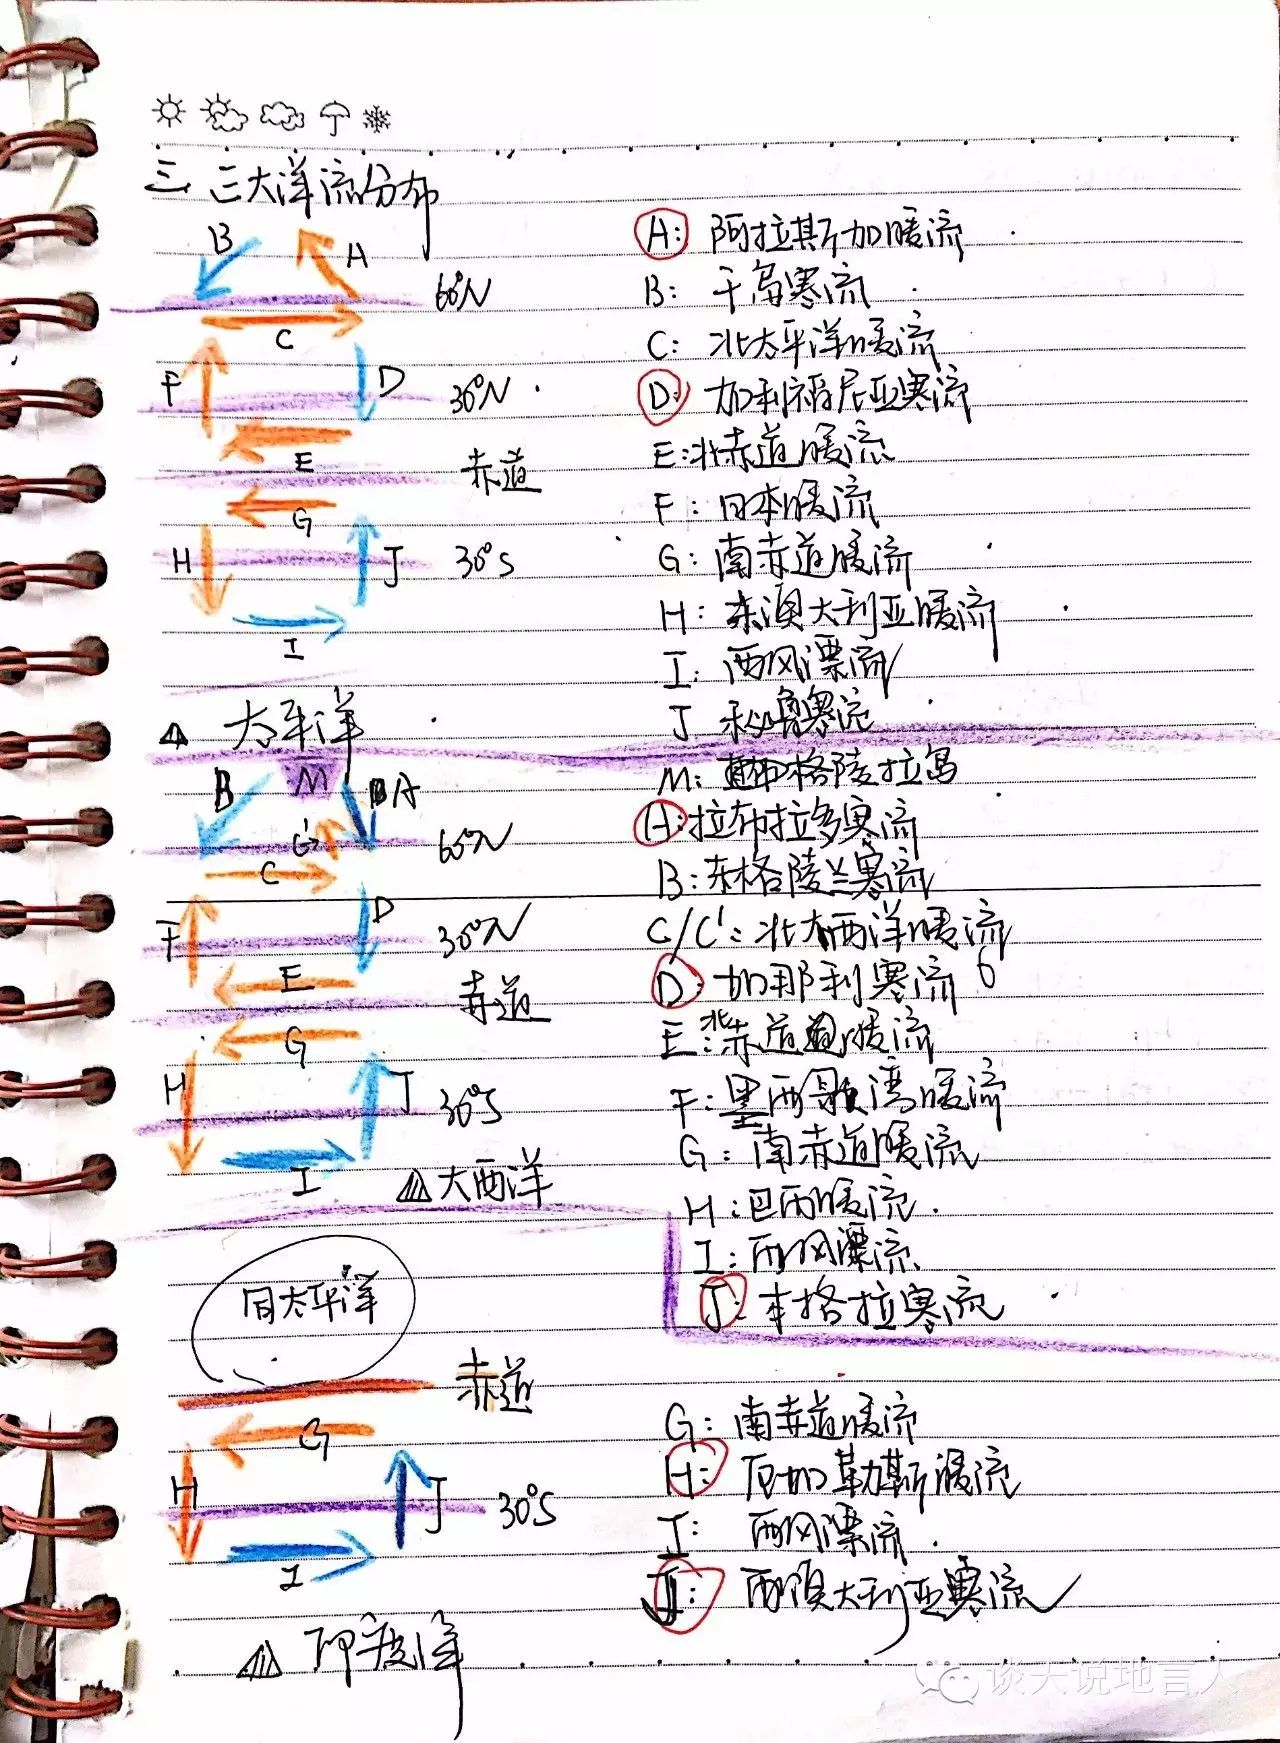 三、三大洋流分布
B
A
60°N
C
F
D
30°N
E
赤道
G
H
J
30°S
I
太平洋
A: 阿拉斯加暖流
B: 千岛寒流
C: 北太平洋暖流
D: 加利福尼亚寒流
E: 北赤道暖流
F: 日本暖流
G: 南赤道暖流
H: 东澳大利亚暖流
I: 西风漂流
J 秘鲁寒流
B
M
A
C'
60°N
C
F
D
30°N
E
赤道
G
H
J
30°S
I
大西洋
M: 格陵拉岛
A: 拉布拉多寒流
B: 东格陵兰寒流
C/C': 北大西洋暖流
D: 加那利寒流
E: 北赤道暖流
F: 墨西歌湾暖流
G: 南赤道暖流
H: 巴西暖流
I: 西风漂流
J: 本格拉寒流
同太平洋
赤道
G
H
J
30°S
I
印度洋
G: 南赤道暖流
H: 厄加勒斯暖流
I: 西风漂流
J: 西澳大利亚寒流
谈天说地言人